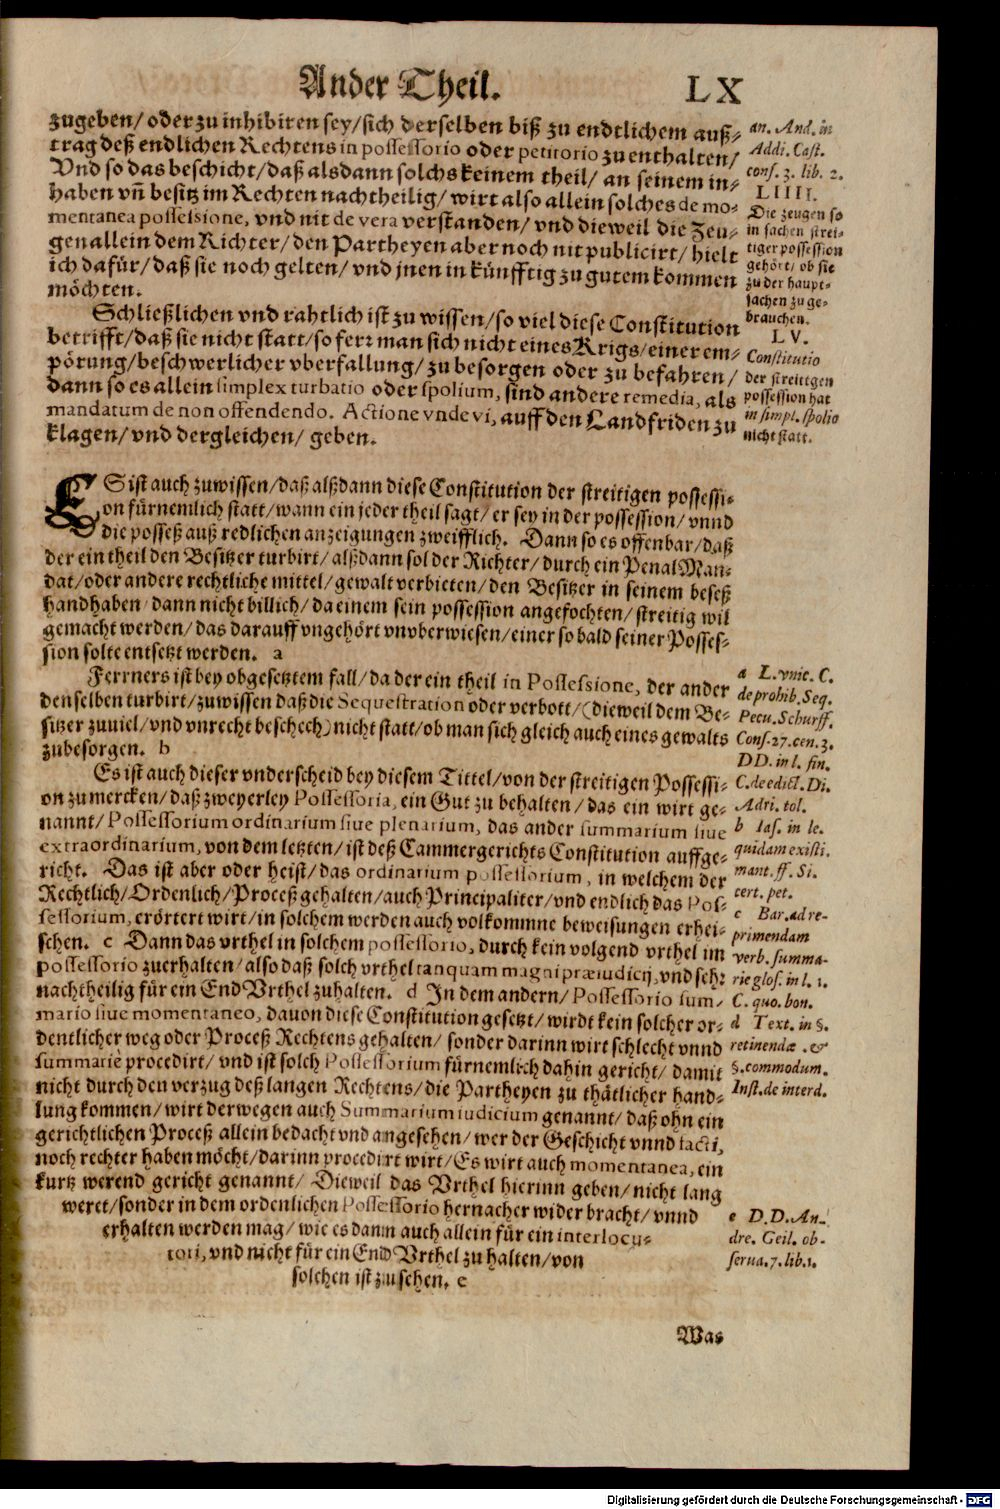 Ander Theil.
LX
zugeben/ oder zu inhibiren sey/ sich derselben biß zu endtlichem auß-
trag deß endlichen Rechtens in possessorio oder petitorio zu enthalten/
Vnd so das beschicht/ daß alsdann solchs keinem theil/ an seinem in-
haben vñ besitz im Rechten nachtheilig/ wirt also allein solches de mo-
mentanea possessione, vnd nit de vera verstanden/ vnd dieweil die Zeu-
gen allein dem Richter/ den Partheyen aber noch nit publicirt/ hielt
ich dafür/ daß sie noch gelten/ vnd jnen in künfftig zu gutem kommen
möchten.
Schließlichen vnd rahtlich ist zu wissen/ so viel diese Constitution
betrifft/ daß sie nicht statt/ so ferr man sich nicht eines Krigs/ einer em-
pörung/ beschwerlicher vberfallung/ zu besorgen oder zu befahren/
dann so es allein simplex turbatio oder spolium, sind andere remedia, als
mandatum de non offendendo. Actione vnde vi, auff den Landfriden zu
klagen/ vnd dergleichen/ geben.
an. And. in
Addi. Cast.
cons. 3. lib. 2.
LIIII.
Die zeugen so
in sachen strei-
tiger possession
gehört/ ob sie
zu der haupt-
sachen zu ge-
brauchen.
LV.
Constitutio
der streittgen
possession hat
in simpl. spolio
nicht statt.
ES ist auch zuwissen/ daß alßdann diese Constitution der streitigen possessi-
on fürnemlich statt/ wann ein jeder theil sagt/ er sey in der possession/ vnnd
die posseß auß redlichen anzeigungen zweifflich. Dann so es offenbar/ daß
der ein theil den Besitzer turbirt/ alßdann sol der Richter/ durch ein Penal Man-
dat/ oder andere rechtliche mittel/ gewalt verbieten/ den Besitzer in seinem beseß
handhaben/ dann nicht billich/ da einem sein possession angefochten/ streitig wil
gemacht werden/ das darauff vngehört vnvberwiesen/ einer so bald seiner Posses-
sion solte entsetzt werden. a
Ferrners ist bey obgesetztem fall/ da der ein theil in Possessione, der ander
denselben turbirt/ zuwissen daß die Sequestration oder verbott/ (dieweil dem Be-
sitzer zuuiel/ vnd vnrecht beschech) nicht statt/ ob man sich gleich auch eines gewalts
zubesorgen. b
Es ist auch dieser vnderscheid bey diesem Tittel/ von der streitigen Possessi-
on zumercken/ daß zweyerley Possessoria, ein Gut zu behalten/ das ein wirt ge-
nannt/ Possessorium ordinarium siue plenarium, das ander summarium siue
extraordinarium, von dem letzten/ ist deß Cammergerichts Constitution auffge-
richt. Das ist aber oder heist/ das ordinarium possessorium, in welchem der
Rechtlich/ Ordenlich/ Proceß gehalten/ auch Principaliter/ vnd endlich das Pos-
sessorium, erörtert wirt/ in solchem werden auch volkommne beweisungen erhei-
schen. c Dann das vrthel in solchem possessorio, durch kein volgend vrthel im
possessorio zuerhalten/ also daß solch vrthel tanquam magni præiudicij, vnd sehr
nachtheilig für ein End Vrthel zuhalten. d In dem andern/ Possessorio sum-
mario siue momentaneo, dauon diese Constitution gesetzt/ wirdt kein solcher or-
dentlicher weg oder Proceß Rechtens gehalten/ sonder darinn wirt schlecht vnnd
summariè procedirt/ vnd ist solch Possessorium fürnemlich dahin gericht/ damit
nicht durch den verzug deß langen Rechtens/ die Partheyen zu thätlicher hand-
lung kommen/ wirt derwegen auch Summarium iudicium genannt/ daß ohn ein
gerichtlichen Proceß allein bedacht vnd angesehen/ wer der Geschicht vnnd facti,
noch rechter haben möcht/ darinn procedirt wirt/ Es wirt auch momentanea, ein
kurtz werend gericht genannt/ Dieweil das Vrthel hierinn geben/ nicht lang
weret/ sonder in dem ordenlichen Possessorio hernacher wider bracht/ vnnd
erhalten werden mag/ wie es dann auch allein für ein interlocu-
tori, vnd nicht für ein End Vrthel zu halten/ von
solchen ist zusehen. e
a L. vnic. C.
de prohib. Seq.
Pecu. Schurff.
Cons. 27. cen. 3.
DD. in l. fin.
C. de edict. Di.
Adri. tol.
b Ias. in le.
quidam existi.
mant. ff. Si.
cert. pet.
c Bar. ad re-
primendam
verb. summa-
rie glos. in l. 1.
C. quo. bon.
d Text. in §.
retinendæ. &
§. commodum.
Inst. de interd.
e D.D. An-
dre. Geil. ob-
serua. 7. lib. 1.
Was
Digitalisierung gefördert durch die Deutsche Forschungsgemeinschaft - DFG